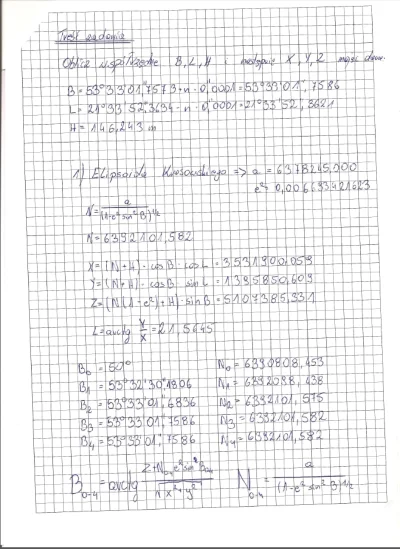 Treść zadania
Oblicz współrzędne B, L, H i następnie X, Y, Z mając dane:
B = 53°33'01",7573 + n · 0",0001 = 53°33'01",7586
L = 21°33'52",3634 - n · 0",0001 = 21°33'52",3621
H = 146,243 m
1) Elipsoida Krasowskiego => a = 6378245,000
e² = 0,006693421623
N = a / (1-e² sin² B)^1/2
N = 6392101,582
X = (N+H) · cosB · cosL = 3531900,059
Y = (N+H) · cosB · sinL = 1395850,609
Z = (N(1-e²)+H) · sinB = 5107385,931
L = arctg Y/X = 21,5645
B₀ = 50° N₀ = 6390808,453
B₁ = 53°32'30",1806 N₁ = 6392098,438
B₂ = 53°33'01",6836 N₂ = 6392101,575
B₃ = 53°33'01",7586 N₃ = 6392101,582
B₄ = 53°33'01",7586 N₄ = 6392101,582
B₀₋₄ = arctg (Z+N₀₋₄e² sin B₀₋₄) / √(x²+y²) N₀₋₄ = a / (1-e² sin² B)^1/2